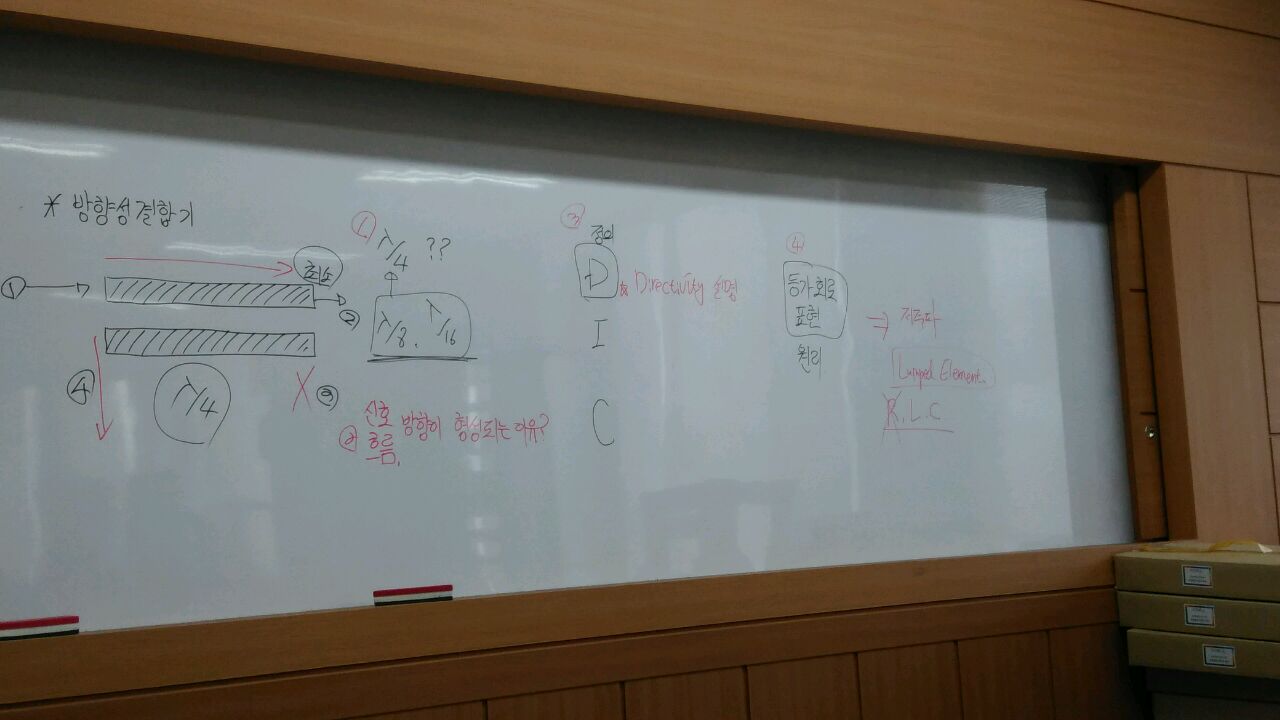 * 방향성결합기
① → 최소
②
④ λ/4 X ③
① λ/4 ??
λ/8, λ/16
② 신호 흐름. 방향이 형성되는 이유?
③ 정의
D * Directivity 설명
I
C
④
등가회로
표현
원리
⇒ 저주파
Lumped Element.
R.L.C